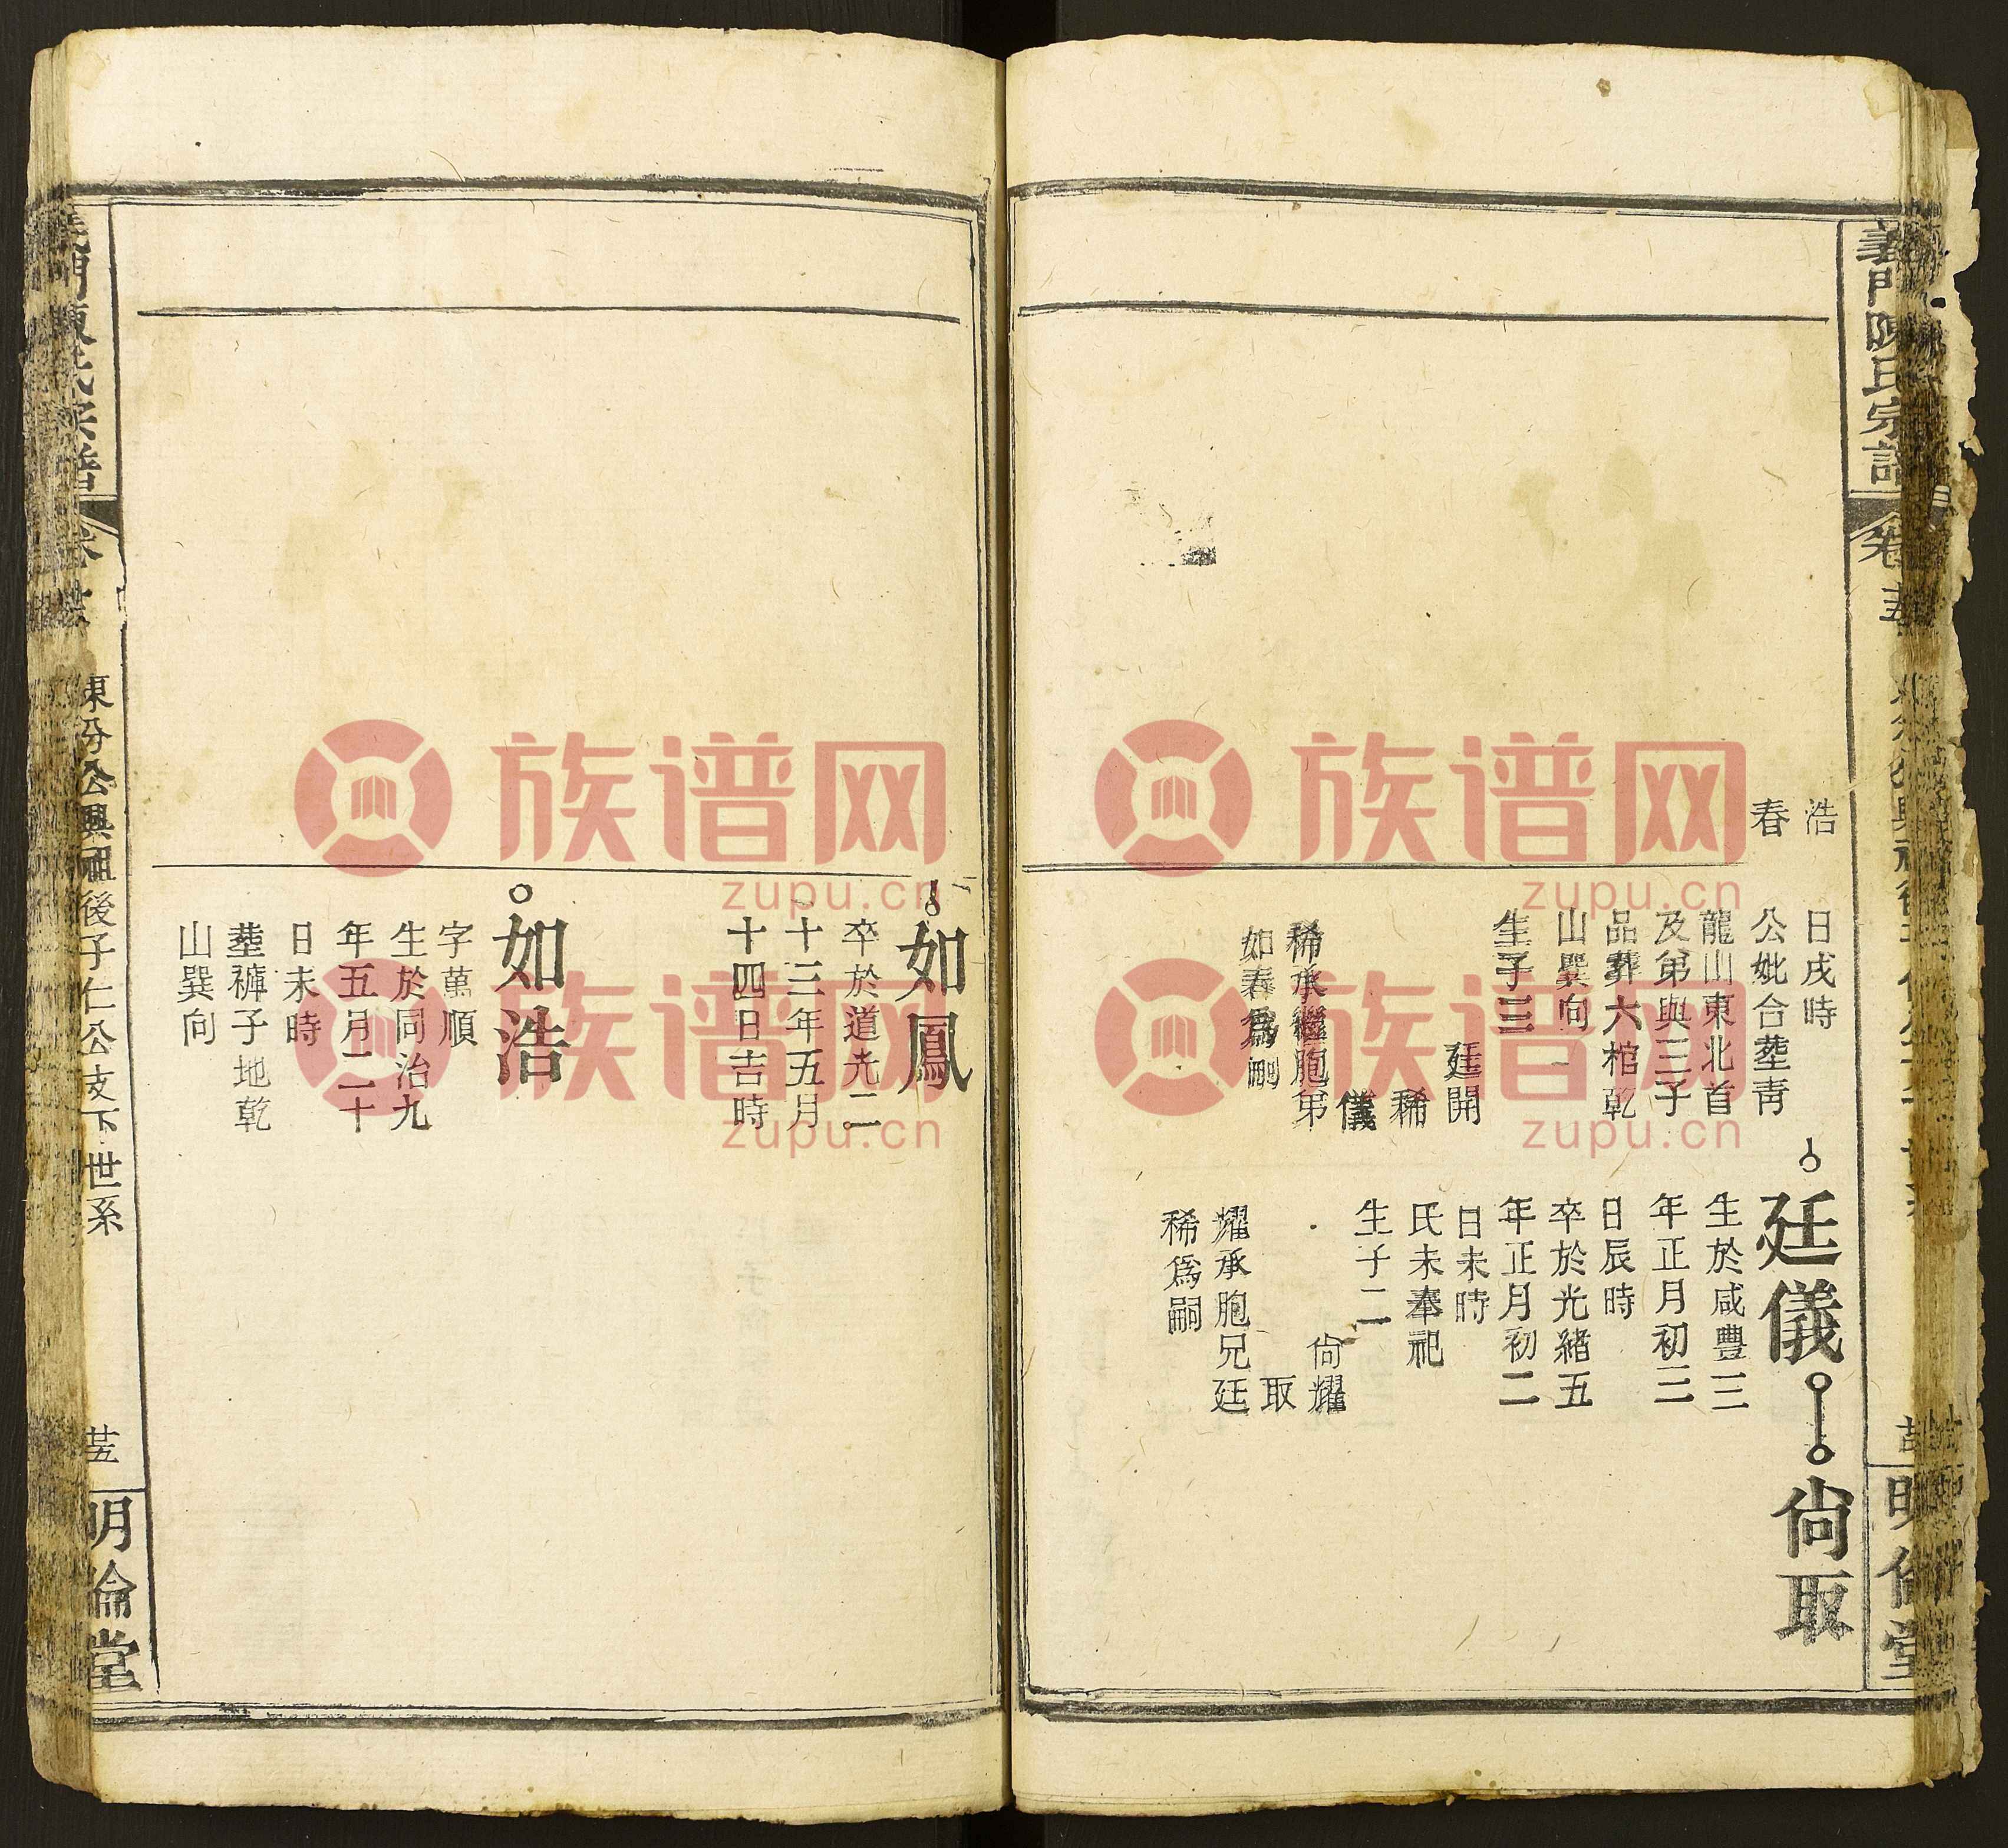 義門陳氏宗譜
卷
五
明倫堂
浩
春
日戌時
公妣合塟靑
龍山東北首
及弟與三子
品葬六棺乾
山巽向
生子三
廷開
稀
儀
稀承繼胞弟
如春爲嗣
廷儀
尙取
生於咸豐三
年正月初三
日辰時
卒於光緒五
年正月初二
日未時
氏未奉祀
生子二
尙耀
取
耀承胞兄廷
稀爲嗣
如鳳
卒於道光二
十三年五月
十四日吉時
如浩
字萬順
生於同治九
年五月二十
日未時
塟褲子地乾
山巽向
義門陳氏宗譜
卷
公興祖後子仁公支下世系
明倫堂
族谱网
zupu.cn
族谱网
zupu.cn
族谱网
zupu.cn
族谱网
zupu.cn